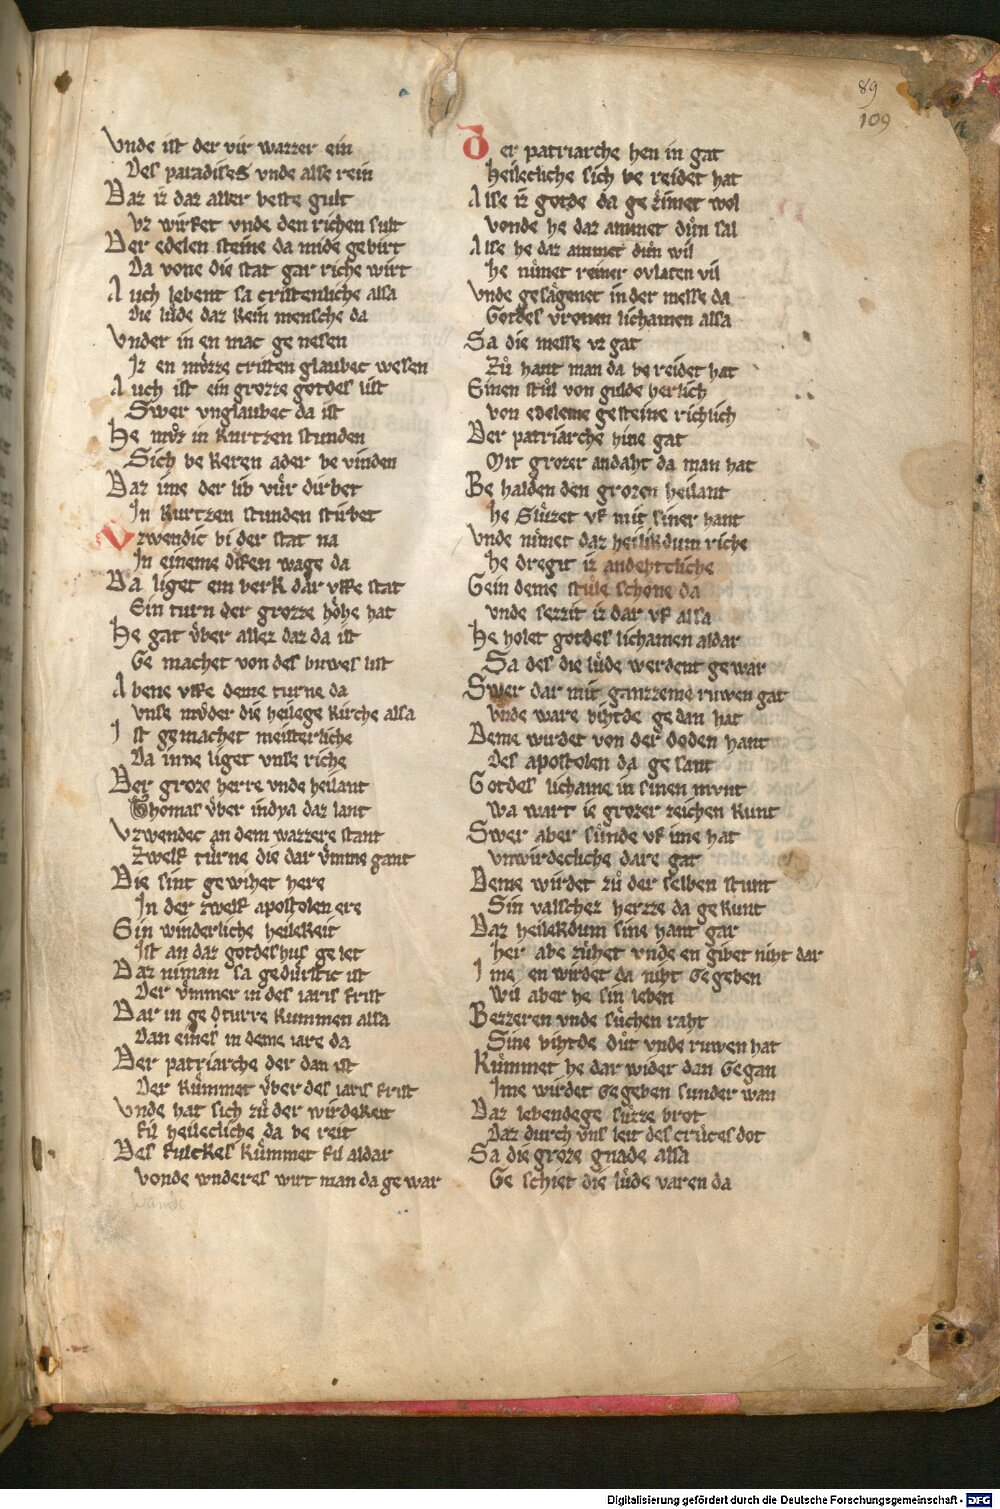 89
109
Vnde ist der vir wazzer ein
Des paradises vnde alse rein
Daz iz daz aller beste gult
vz wirket vnde den richen sult
Der edelen steine da mide gebirt
Da vone die stat gar riche wirt
Auch lebent sa cristenliche alsa
die lůde daz kein mensche da
Vnder in en mac ge nesen
Iz en mŏzze cristen glaubec wesen
Auch ist ein grozze gotdes list
Swer vnglaubec da ist
He mvͦz in kurtzen stunden
Sich be keren ader be vinden
Daz ime der lib vuͤr dirbet
In kurtzen stunden stirbet
Vzwendic bi der stat na
In eineme diken wage da
Da liget ein berk dar vffe stat
Ein turn der grozze hŏhe hat
He gat vͤber allez daz da ist
Ge machet von des buwes list
Abene vffe deme turne da
vnse mvͦder die heilege kirche alsa
Ist gemachet meisterliche
Da inne liget vnse riche
Der groze herre vnde heilant
Thomas vͤber indya daz lant
Vzwendec an dem wazzere stant
Zwelf tuͤrne die dar vͤmme gant
Die sint gewihet here
In der zwelf apostolen ere
Sin winderliche heilekeit
Ist an daz gotdeshus ge let
Daz niman sa geduͤrstic ist
Der vͤmmer in des iaris frist
Dar in ge dturre kummen alsa
Dan eines in deme iare da
Der patriarche der dan ist
Der kuͤmmet vͤber des iaris frist
Vnde hat sich zuͦ der wirdekeit
fil heilecliche da be reit
Des fulckes kuͤmmet fil aldar
vonde wnderes wirt man da ge war
Der patriarche hen in gat
Heilecliche sich be reidet hat
Alse iz gotde da ge zimet wol
vonde he daz ammet duͦn sal
Alse he daz ammet duͦn wil
he nimet reiner ovlaten vil
Vnde gesegenet in der messe da
Gotdes vronen lichamen alsa
Sa die messe vz gat
Zuͦ hant man da be reidet hat
Einen stuͦl von gulde herlich
von edeleme gesteine richlich
Der patriarche hine gat
Mit grozer andaht da man hat
Be halden den grozen heilant
he sluzet vf mit siner hant
Vnde nimet daz heilikdum riche
he dregit iz andehtcliche
Gein deme stule schone da
vnde sezzit iz dar vf alsa
He holet gotdes lichamen aldar
Sa des die luͤde werdent gewar
Swer dar mit ganzzeme ruwen gat
vnde ware bihtde ge dan hat
Deme wirdet von der doden hant
des apostolen da ge sant
Gotdes lichame in sinen mvnt
wa wart ie grozer zeichen kunt
Swer aber suͤnde vf ime hat
vnwirdecliche dare gat
Deme wirdet zuͦ der selben stunt
Sin valschez herzze da ge kunt
Daz heilekdum sine hant gar
her abe zuͤhet vnde en gibet niht dar
Ime en wirdet da niht Ge geben
wil aber he sin leben
Bezzeren vnde suͤchen raht
Sine bihtde duͦt vnde ruwen hat
Kuͤmmet he dar wider dan Gegan
Ime wirdet Ge geben sunder wan
Daz lebendege suͤzze brot
Daz durch vns leit des cruces dot
Sa die groze gnade alsa
Ge schiet die luͤde varen da
Digitalisierung gefördert durch die Deutsche Forschungsgemeinschaft - DFG